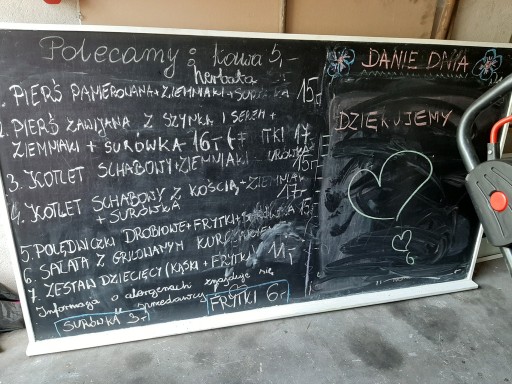 Polecamy: kawa 5,-
herbata
1. PIERŚ PANIEROWANA+ZIEMNIAKI+SURÓWKA 15,-
2. PIERŚ ZAWIJANA Z SZYNKĄ I SEREM+
ZIEMNIAKI + SURÓWKA 16,- (+ TKI 17
3. KOTLET SCHABOWY+ZIEMNIAKI 15,-
4. KOTLET SCHABOWY Z KOŚCIĄ+ZIEMNIA
+ SURÓWKA 17,-
5. POLĘDWICZKI DROBIOWE+FRYTKI+ 15,-
6. SAŁATA Z GRILOWANYM KURCZAKIEM
7. ZESTAW DZIECIĘCY (KĄSKI+FRYTKI 11,-
Informacja o alergenach znajduje się
u sprzedawcy
SURÓWKA 3,-
FRYTKI 6,-
DANIE DNIA
DZIĘKUJEMY